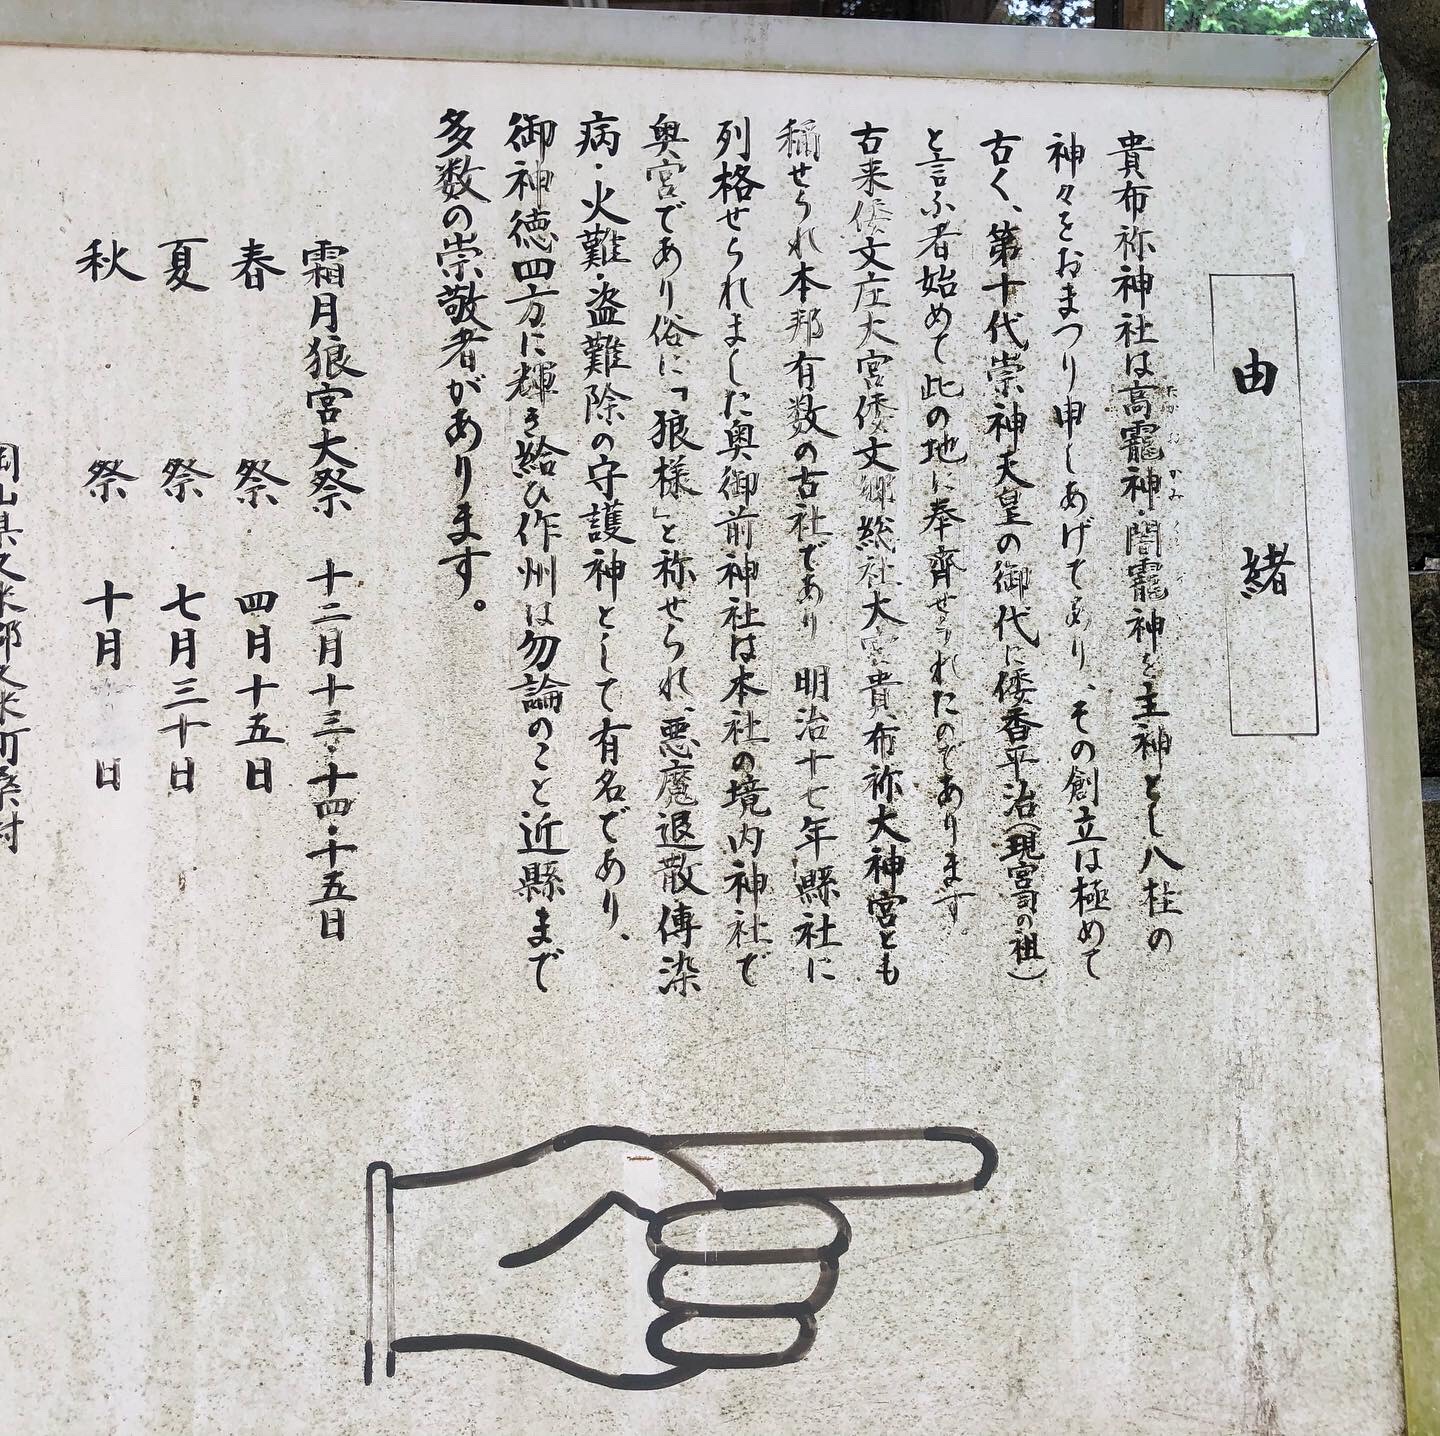 由緒
貴布祢神社は高龗神・闇龗神を主神とし八柱の
神々をおまつり申しあげてあり、その創立は極めて
古く、第十代崇神天皇の御代に倭香平治(現宮司の祖)
と言ふ者始めて此の地に奉齊せられたのであります。
古来倭文庄大宮倭文郷総社大宮貴布祢大神宮とも
稱せられ本邦有数の古社であり 明治十七年縣社に
列格せられました奥御前神社は本社の境内神社で
奥宮であり俗に「狼様」と称せられ、悪魔退散傳染
病・火難・盗難除の守護神として有名であり、
御神徳四方に輝き給ひ作州は勿論のこと近縣まで
多数の崇敬者があります。
霜月狼宮大祭 十二月十三・十四・十五日
春祭 四月十五日
夏祭 七月三十日
秋祭 十月 日
岡山県久米郡久米町桑村